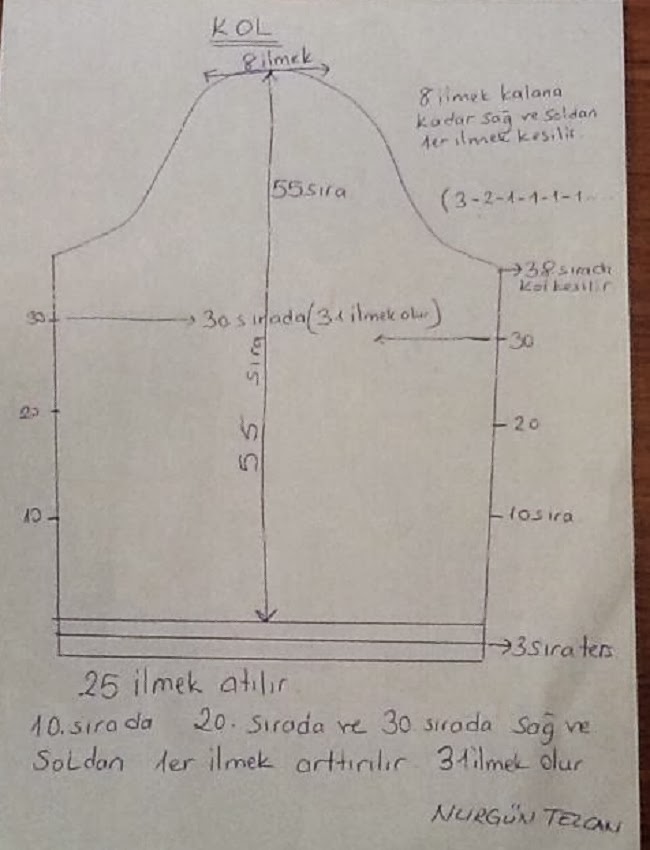 KOL
8 ilmek
8 ilmek kalana
kadar sağ ve soldan
1er ilmek kesilir.
55 sıra
(3-2-1-1-1-1...
38. sırada
kol kesilir
30
30 sırada (31 ilmek olur)
30
55 sıra
20
20
10
10 sıra
3 sıra ters
25 ilmek atılır
10. sırada 20. sırada ve 30 sırada sağ ve
Soldan 1er ilmek arttırılır 31 ilmek olur
NURGÜN TEZCAN